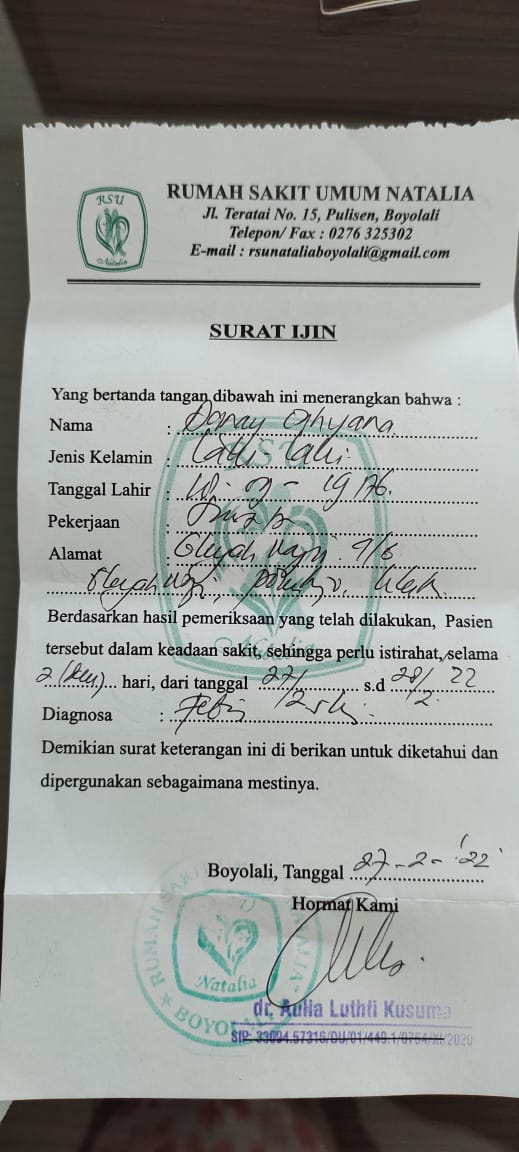 RSU
Natalia
RUMAH SAKIT UMUM NATALIA
Jl. Teratai No. 15, Pulisen, Boyolali
Telepon/ Fax : 0276 325302
E-mail : rsunataliaboyolali@gmail.com
SURAT IJIN
Yang bertanda tangan dibawah ini menerangkan bahwa :
Nama :
Jenis Kelamin : Laki laki
Tanggal Lahir : 1976.
Pekerjaan :
Alamat : 9/6
Berdasarkan hasil pemeriksaan yang telah dilakukan, Pasien
tersebut dalam keadaan sakit, sehingga perlu istirahat, selama
2 hari, dari tanggal 27/2 s.d 28/2 22
Diagnosa : Febris
Demikian surat keterangan ini di berikan untuk diketahui dan
dipergunakan sebagaimana mestinya.
Boyolali, Tanggal 27-2-'22
Hormat Kami
Natalia
BOYOLALI
dr. Aulia Luthfi Kusuma
SIP: 33094.57316/DU/01/449.1/0764/XI/2020